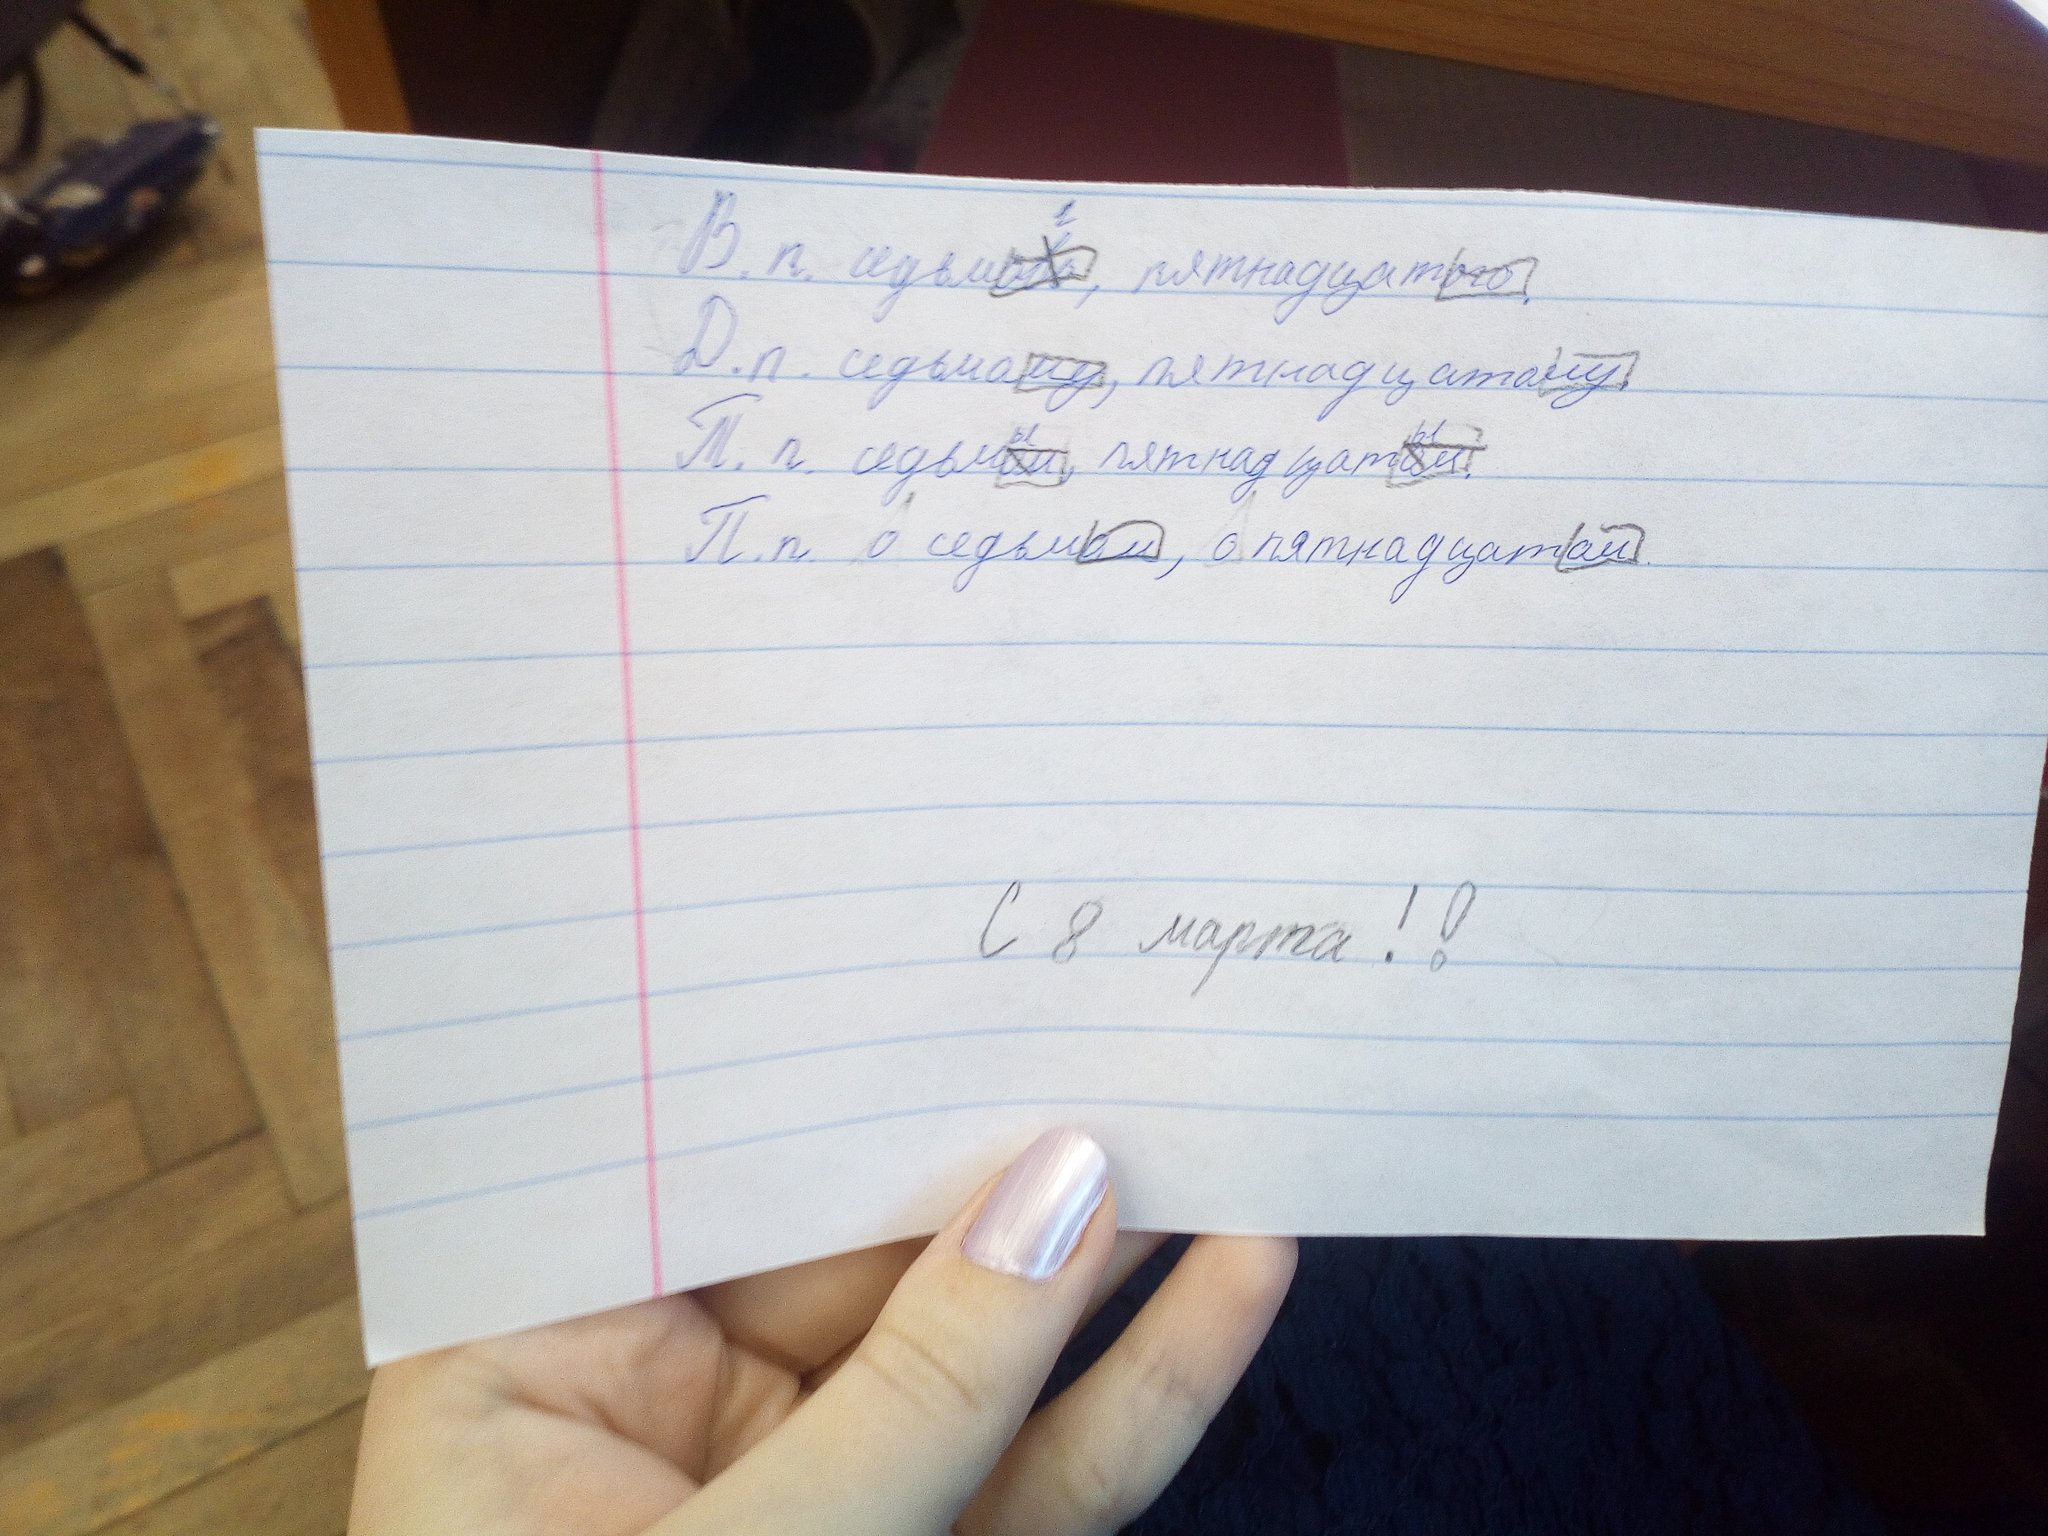 В. п. седьмого, пятнадцатого.
Д. п. седьмому, пятнадцатому.
Т. п. седьмым, пятнадцатым.
П. п. о седьмом, о пятнадцатом.
С 8 марта!!